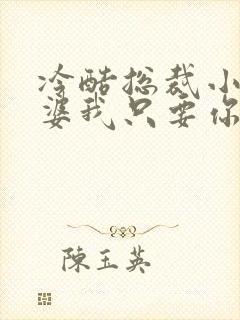 冷酷总裁小
婆我只要你
陳玉英